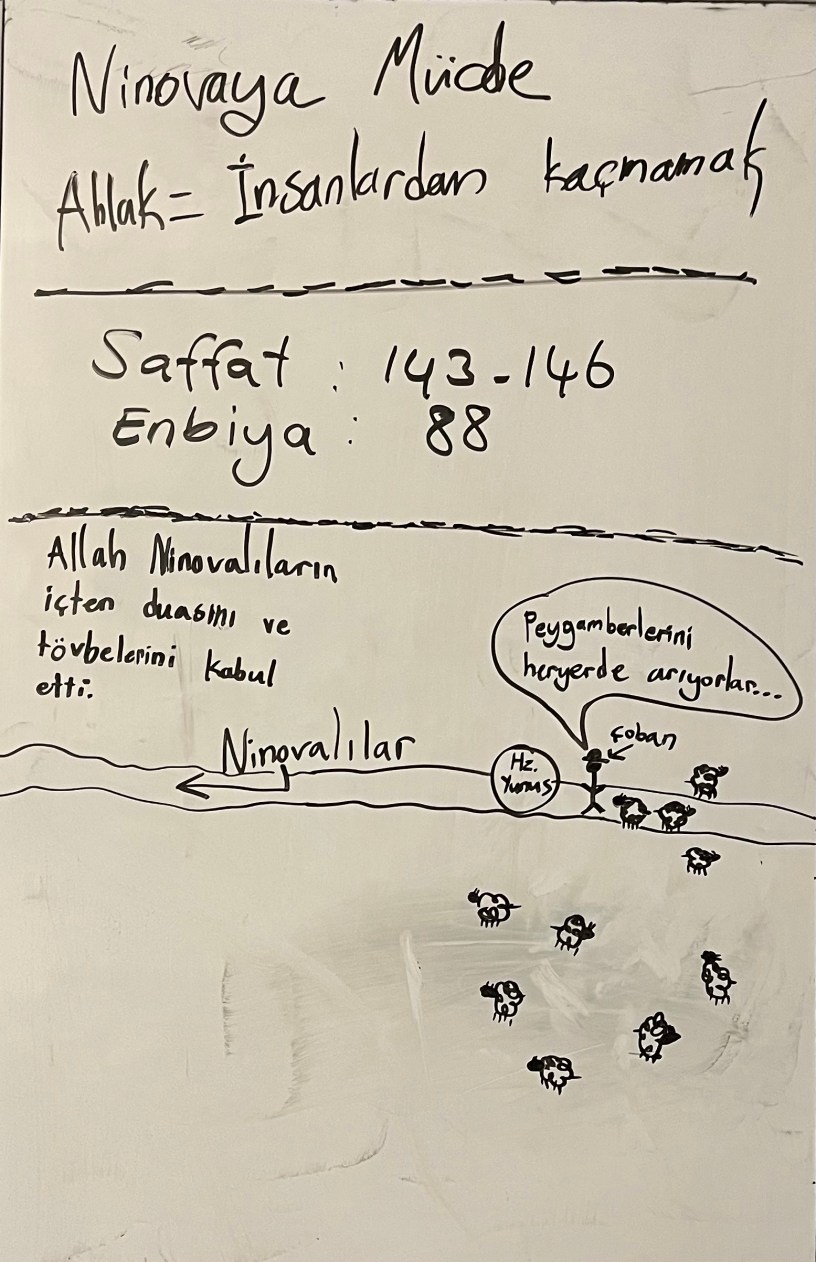 Ninovaya Müjde
Ahlak = İnsanlardan kaçmamak
Saffat : 143-146
Enbiya : 88
Allah Ninovalıların
içten duasını ve
tövbelerini kabul
etti.
Peygamberlerini
heryerde arıyorlar...
çoban
Ninovalılar
Hz.
Yunus